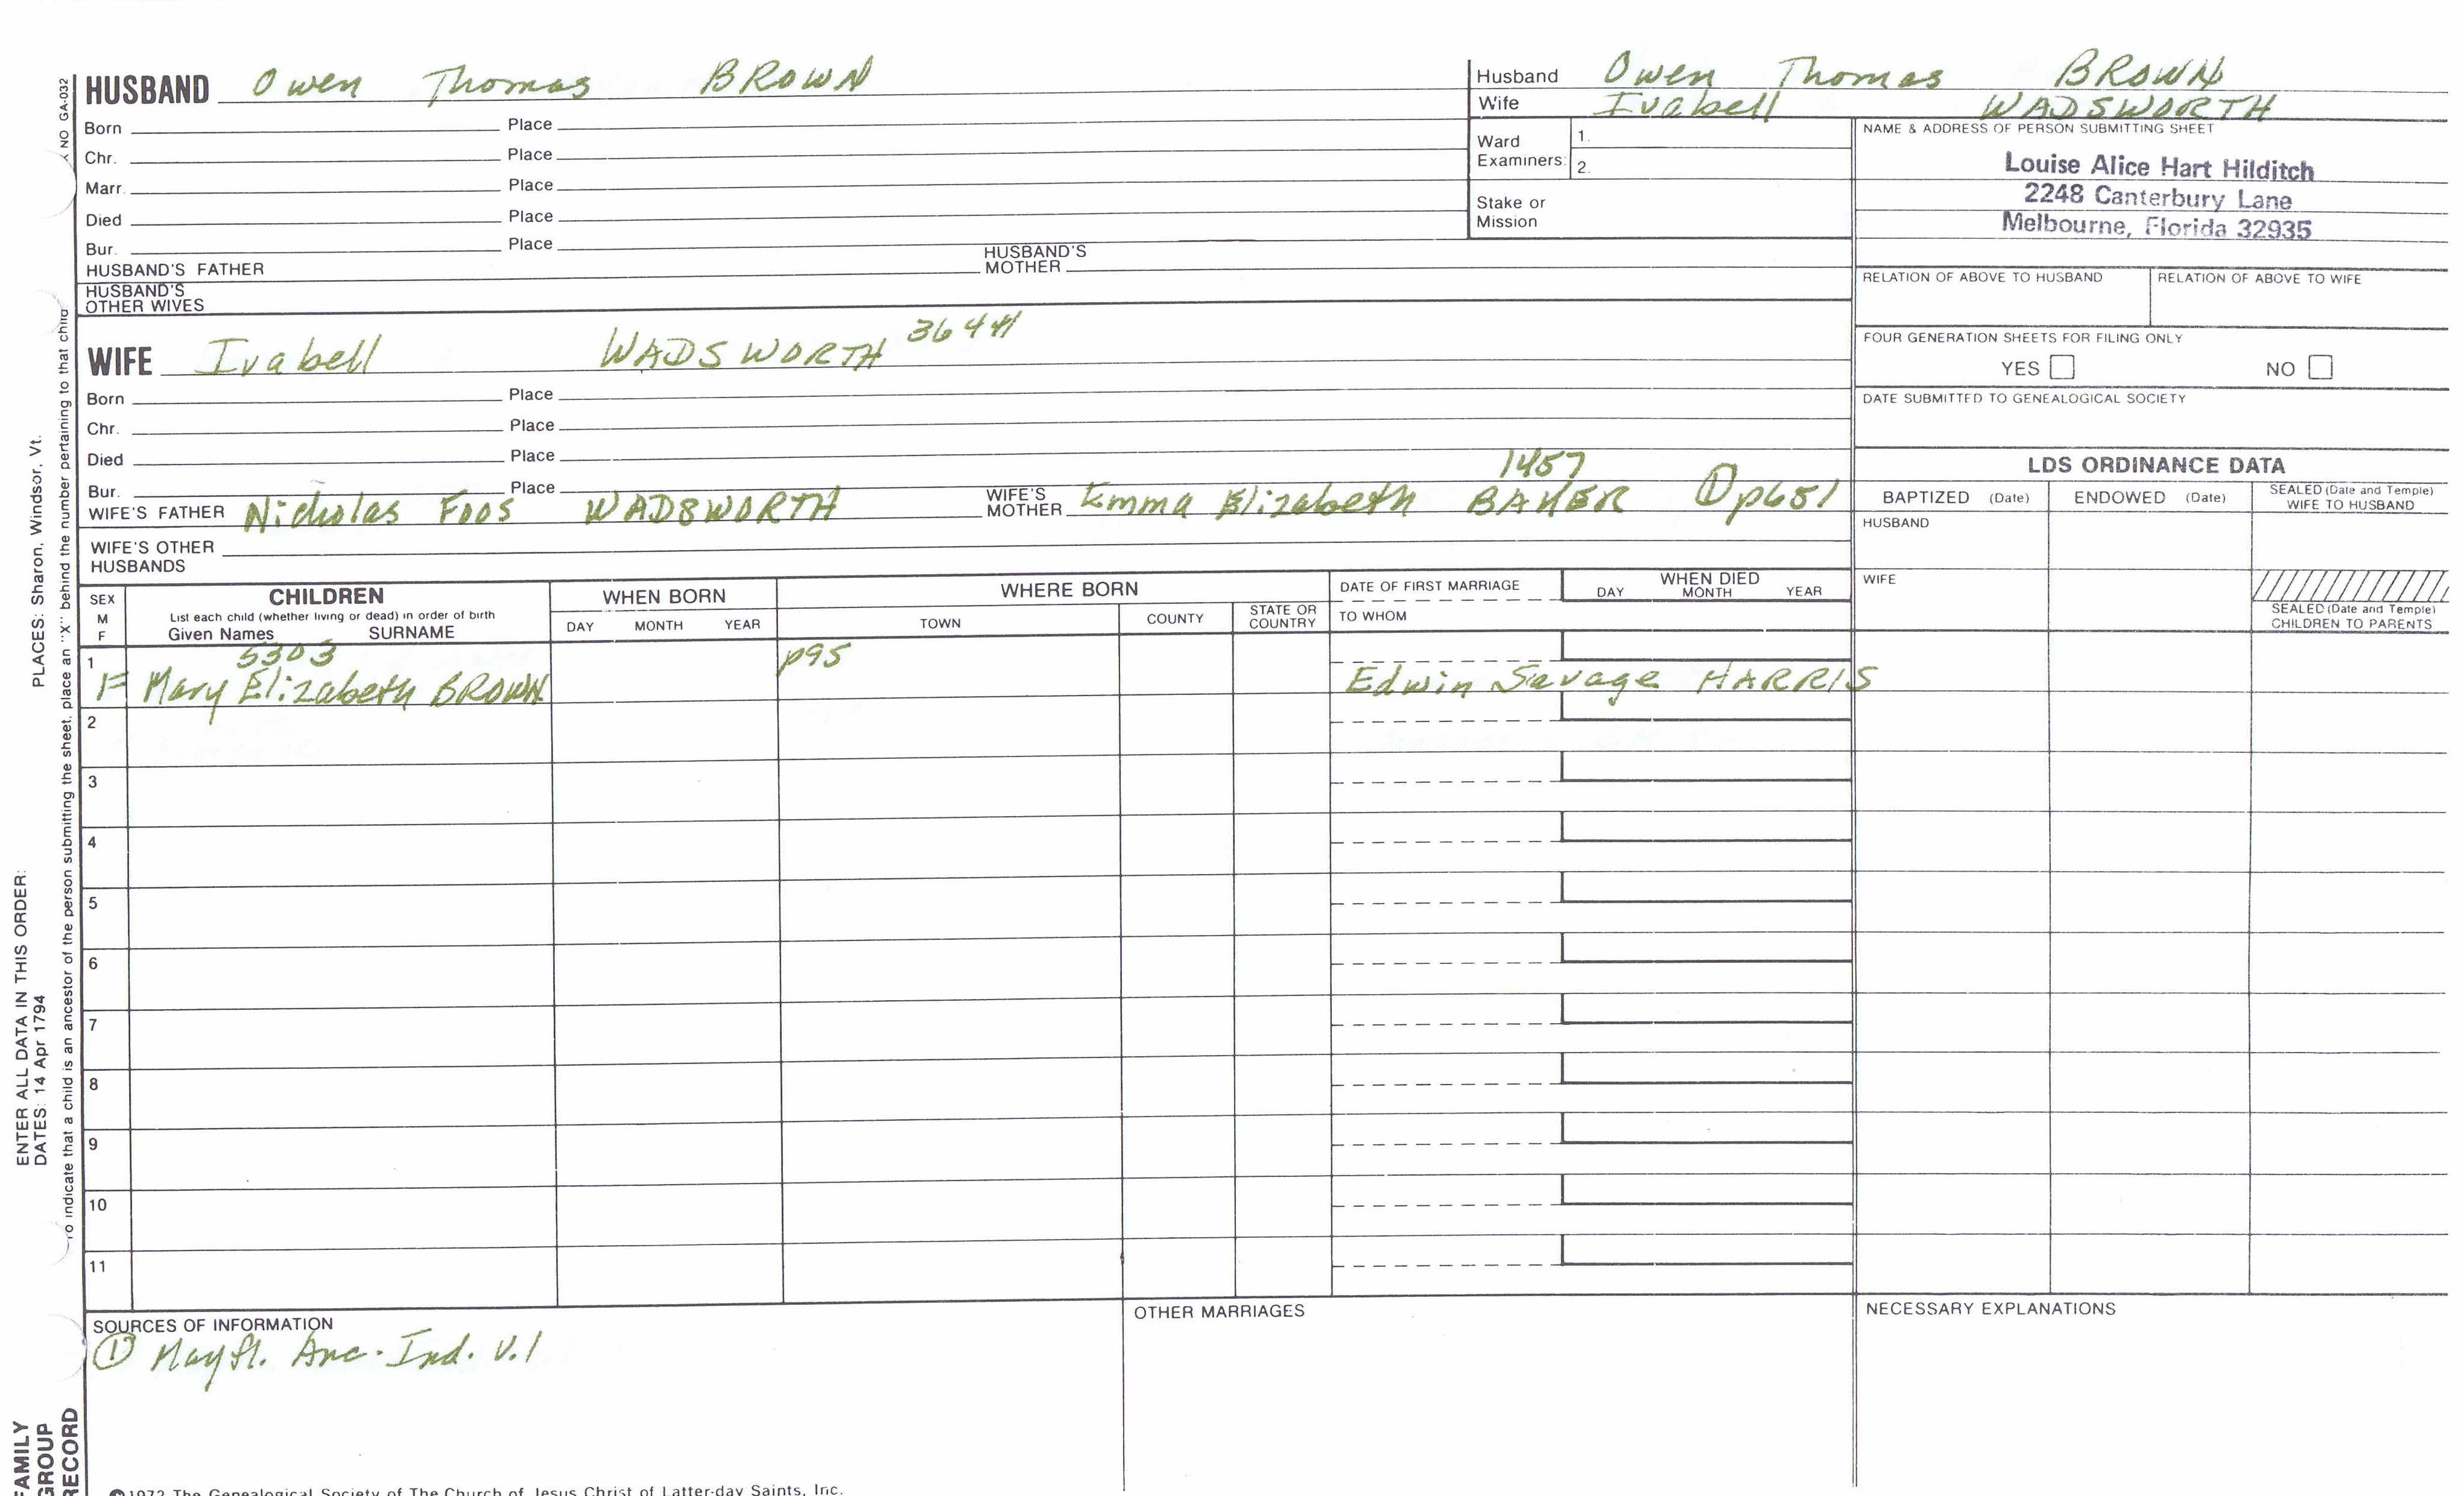 HUSBAND Owen Thomas BROWN
Born Place
Chr. Place
Marr. Place
Died Place
Bur. Place
HUSBAND'S FATHER HUSBAND'S MOTHER
HUSBAND'S OTHER WIVES
WIFE Ivabell WADSWORTH
Born Place
Chr. Place
Died Place
Bur. Place
1457
WIFE'S FATHER Nicholas Foos WADSWORTH WIFE'S MOTHER Emma Elizabeth BAKER ① p651
WIFE'S OTHER HUSBANDS
Husband Owen Thomas BROWN
Wife Ivabell WADSWORTH
Ward Examiners: 1.
2.
Stake or Mission
NAME & ADDRESS OF PERSON SUBMITTING SHEET
Louise Alice Hart Hilditch
2248 Canterbury Lane
Melbourne, Florida 32935
RELATION OF ABOVE TO HUSBAND RELATION OF ABOVE TO WIFE
FOUR GENERATION SHEETS FOR FILING ONLY
YES NO
DATE SUBMITTED TO GENEALOGICAL SOCIETY
LDS ORDINANCE DATA
BAPTIZED (Date) ENDOWED (Date) SEALED (Date and Temple) WIFE TO HUSBAND
HUSBAND
WIFE
SEALED (Date and Temple) CHILDREN TO PARENTS
SEX M F
CHILDREN
List each child (whether living or dead) in order of birth
Given Names SURNAME
WHEN BORN
DAY MONTH YEAR
WHERE BORN
TOWN COUNTY STATE OR COUNTRY
DATE OF FIRST MARRIAGE
TO WHOM
WHEN DIED
DAY MONTH YEAR
1 5303 p95
F Mary Elizabeth BROWN Edwin Savage HARRIS
2
3
4
5
6
7
8
9
10
11
SOURCES OF INFORMATION
① Mayfl. Anc. Ind. V.1
OTHER MARRIAGES
NECESSARY EXPLANATIONS
©1972 The Genealogical Society of The Church of Jesus Christ of Latter-day Saints, Inc.
NO GA-032
PLACES: Sharon, Windsor, Vt.
ENTER ALL DATA IN THIS ORDER:
DATES: 14 Apr 1794
To indicate that a child is an ancestor of the person submitting the sheet, place an "X" behind the number pertaining to that child
FAMILY
GROUP
RECORD